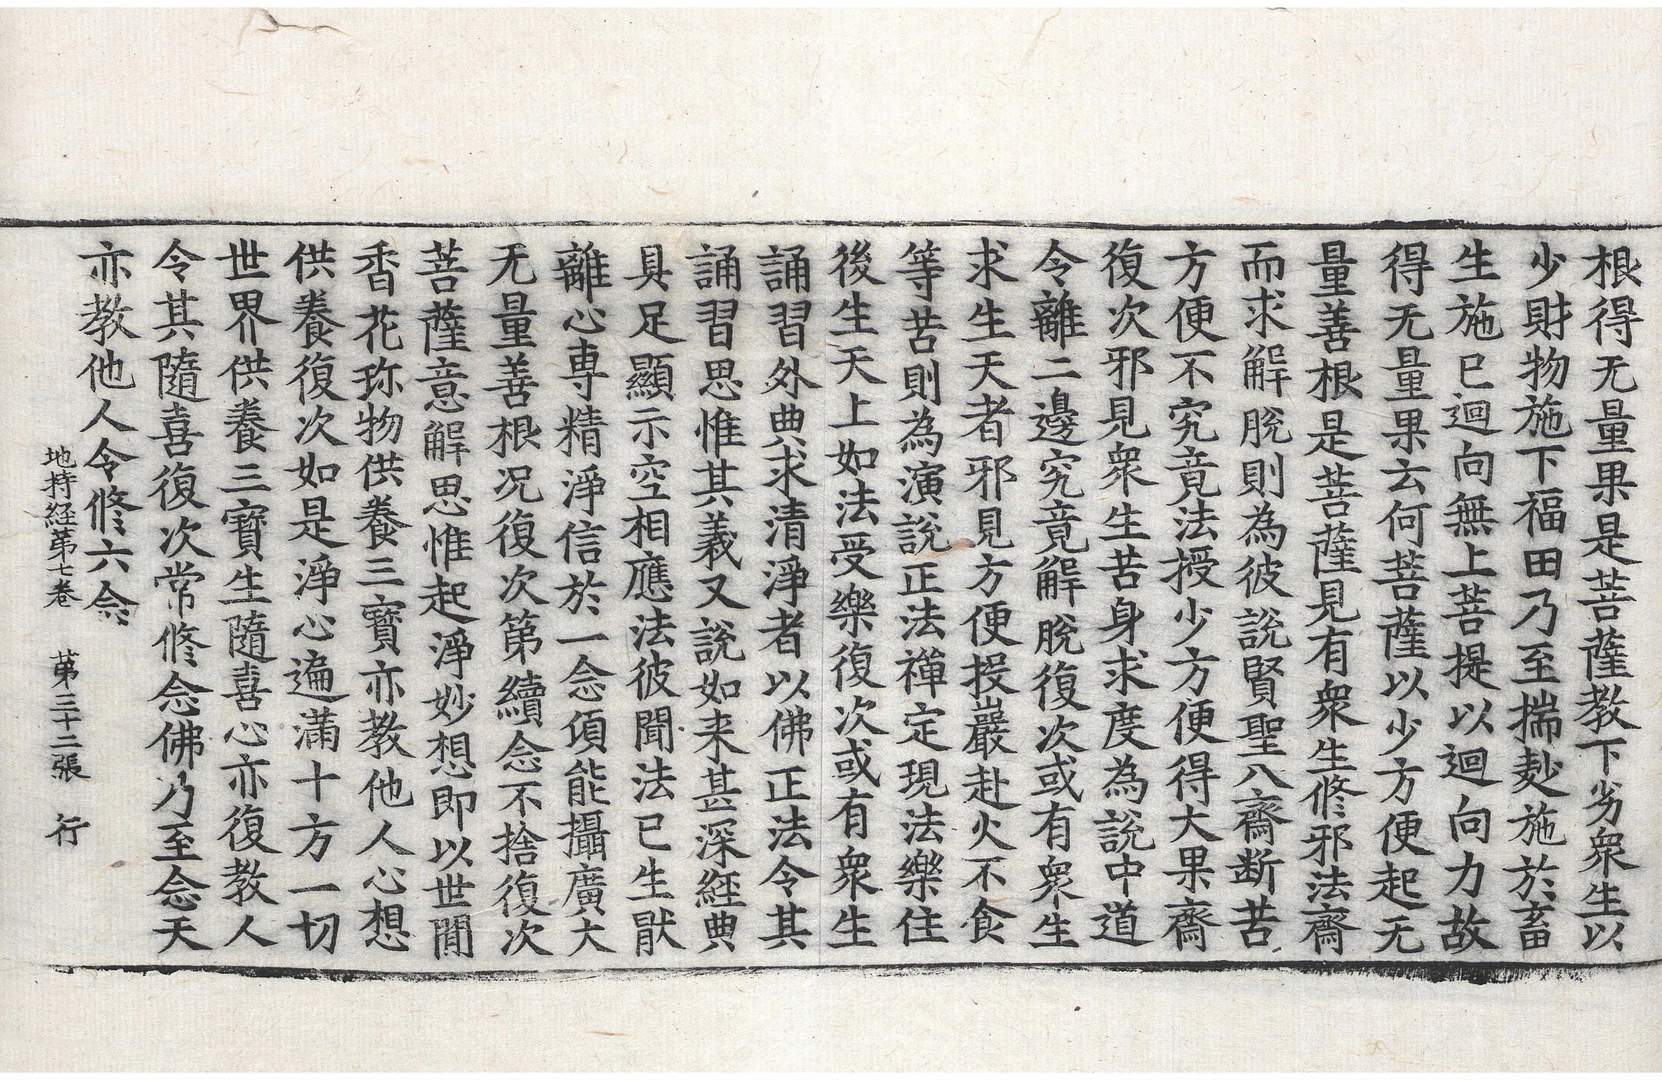 根得无量果是菩薩教下劣衆生以
少財物施下福田乃至揣麨施於畜
生施已迴向無上菩提以迴向力故
得无量果云何菩薩以少方便起无
量善根是菩薩見有衆生修邪法齋
而求解脫則為彼說賢聖八齋断苦
方便不究竟法授少方便得大果齋
復次邪見衆生苦身求度為說中道
令離二邊究竟解脫復次或有衆生
求生天者邪見方便投巖赴火不食
等苦則為演說正法禪定現法樂住
後生天上如法受樂復次或有衆生
誦習外典求清淨者以佛正法令其
誦習思惟其義又說如来甚深經典
具足顯示空相應法彼聞法已生猒
離心専精淨信於一念頃能攝廣大
无量善根况復次第續念不捨復次
菩薩意解思惟起淨妙想即以世間
香花珎物供養三寶亦教他人心想
供養復次如是淨心遍滿十方一切
世界供養三寶生隨喜心亦復教人
令其隨喜復次常修念佛乃至念天
亦教他人令修六念
地持経第七卷 第三十二張 行